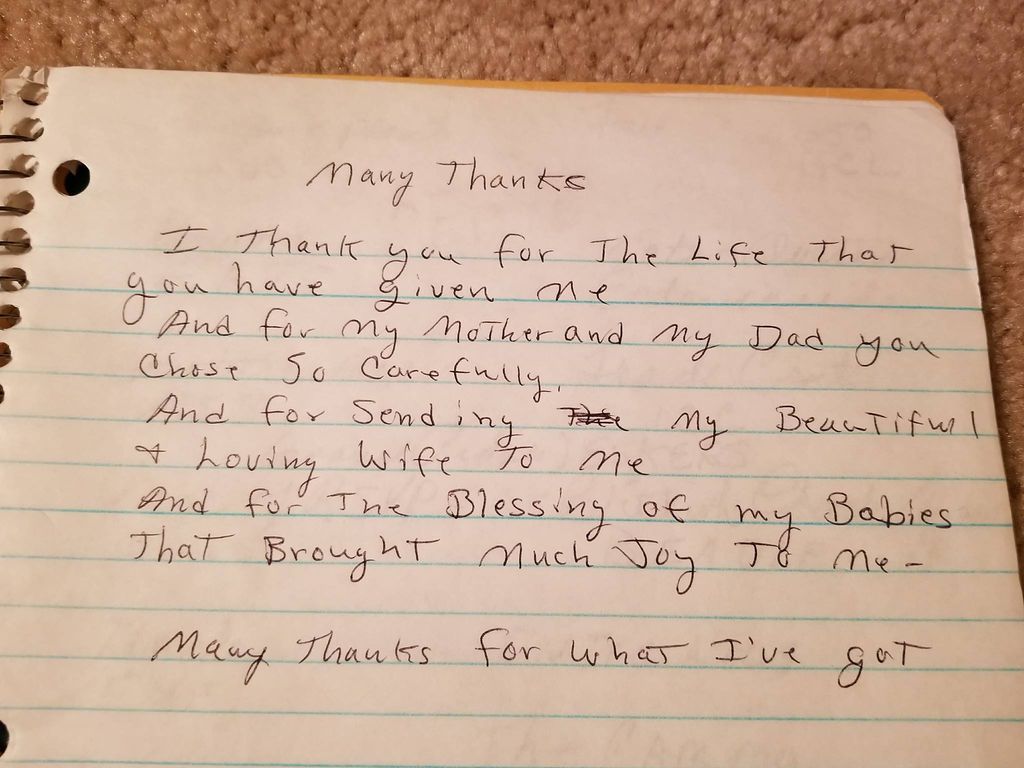 Many Thanks
I Thank you for The Life That
you have given me
And for my Mother and my Dad you
Chose So Carefully,
And for Sending my Beautiful
+ Loving Wife To me
And for The Blessing of my Babies
That Brought Much Joy To me-
Many Thanks for what I've got